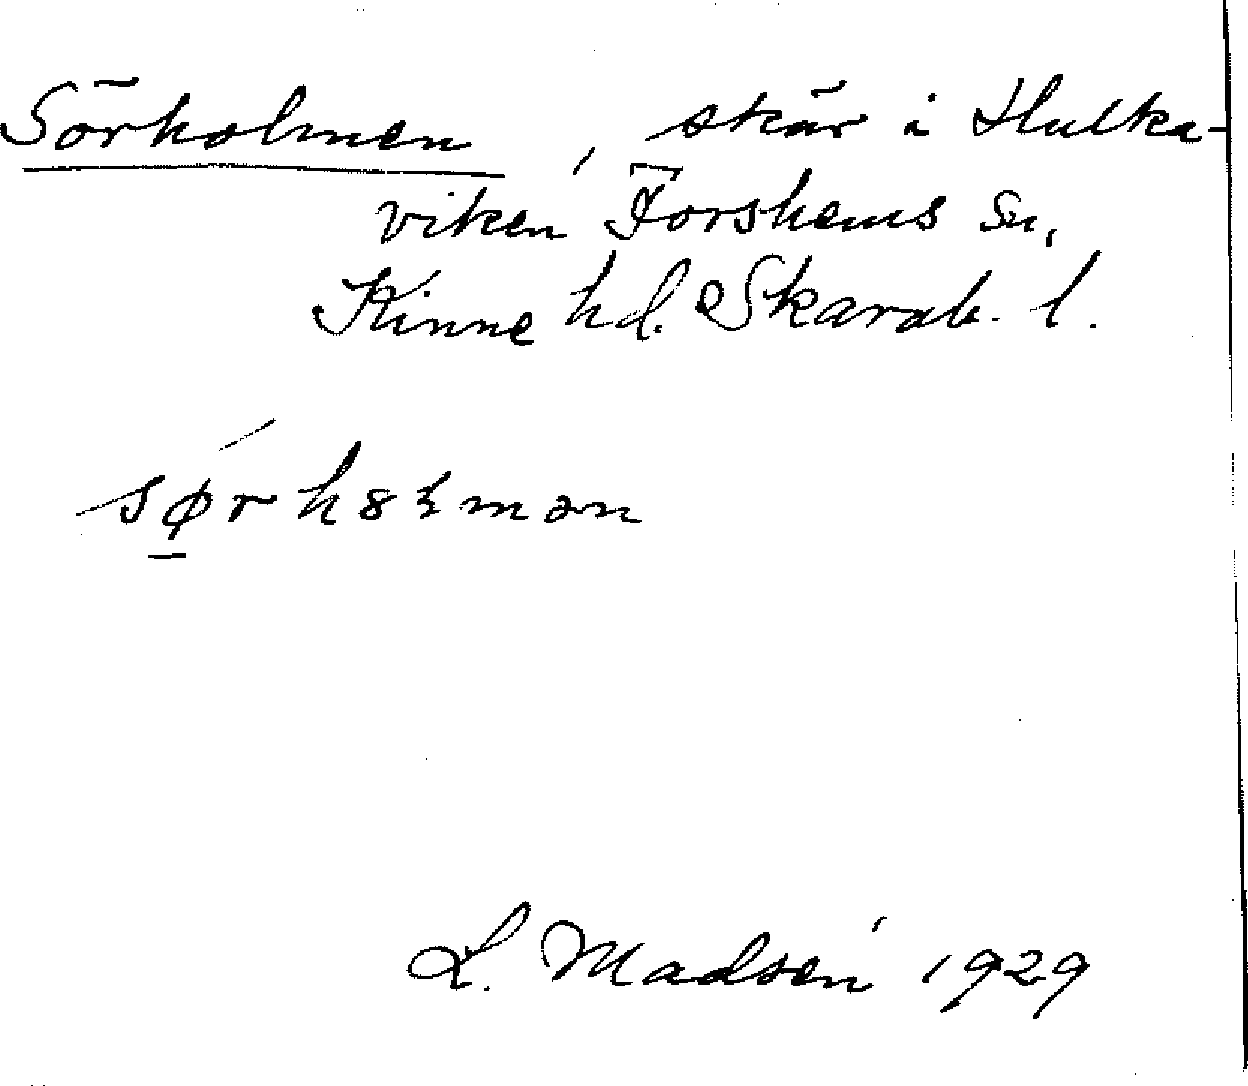 Sörholmen, skär i Hulka-
viken Forshems sn,
Kinne hd. Skarab. l.
L. Madsén 1929